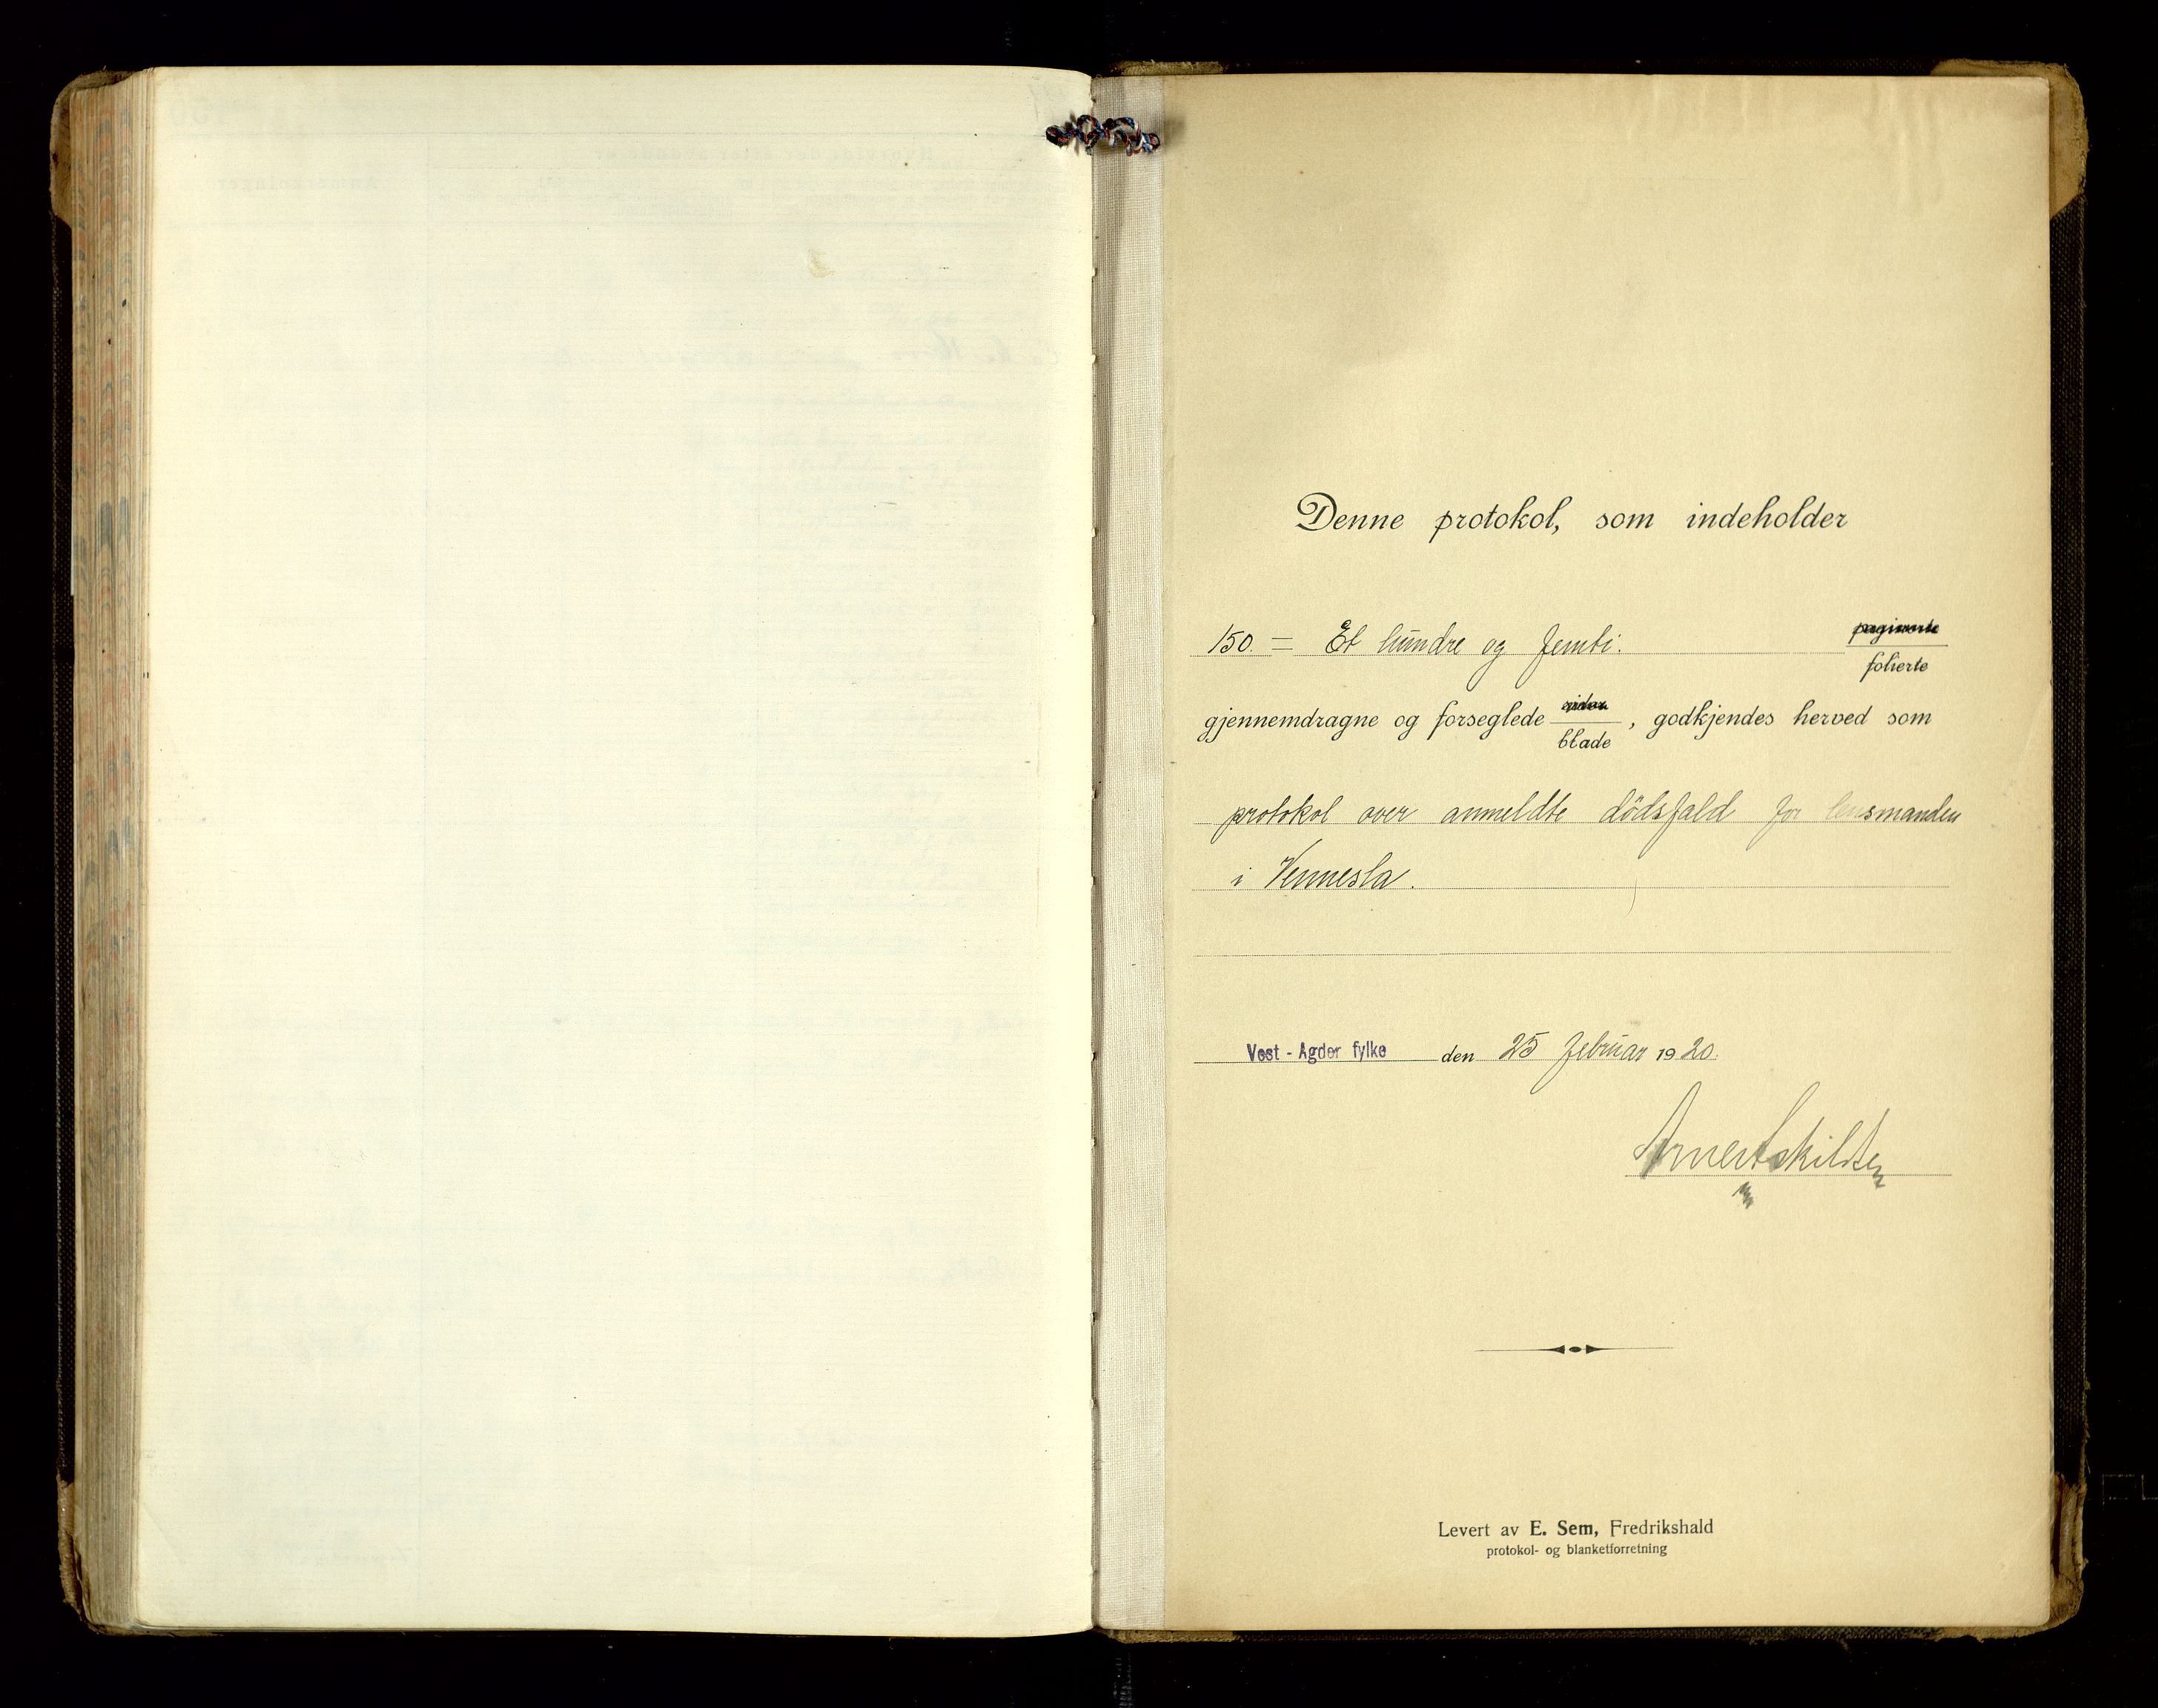 Denne protokol, som indeholder
150. = Et hundre og femti. paginerte
folierte
gjennemdragne og forseglede sider
blade, godkjendes herved som
protokol over anmeldte dödsfald for lensmanden
i Vennesla.
Vest - Agder fylke den 25 februar 1920.
Levert av E. Sem, Fredrikshald
protokol- og blanketforretning